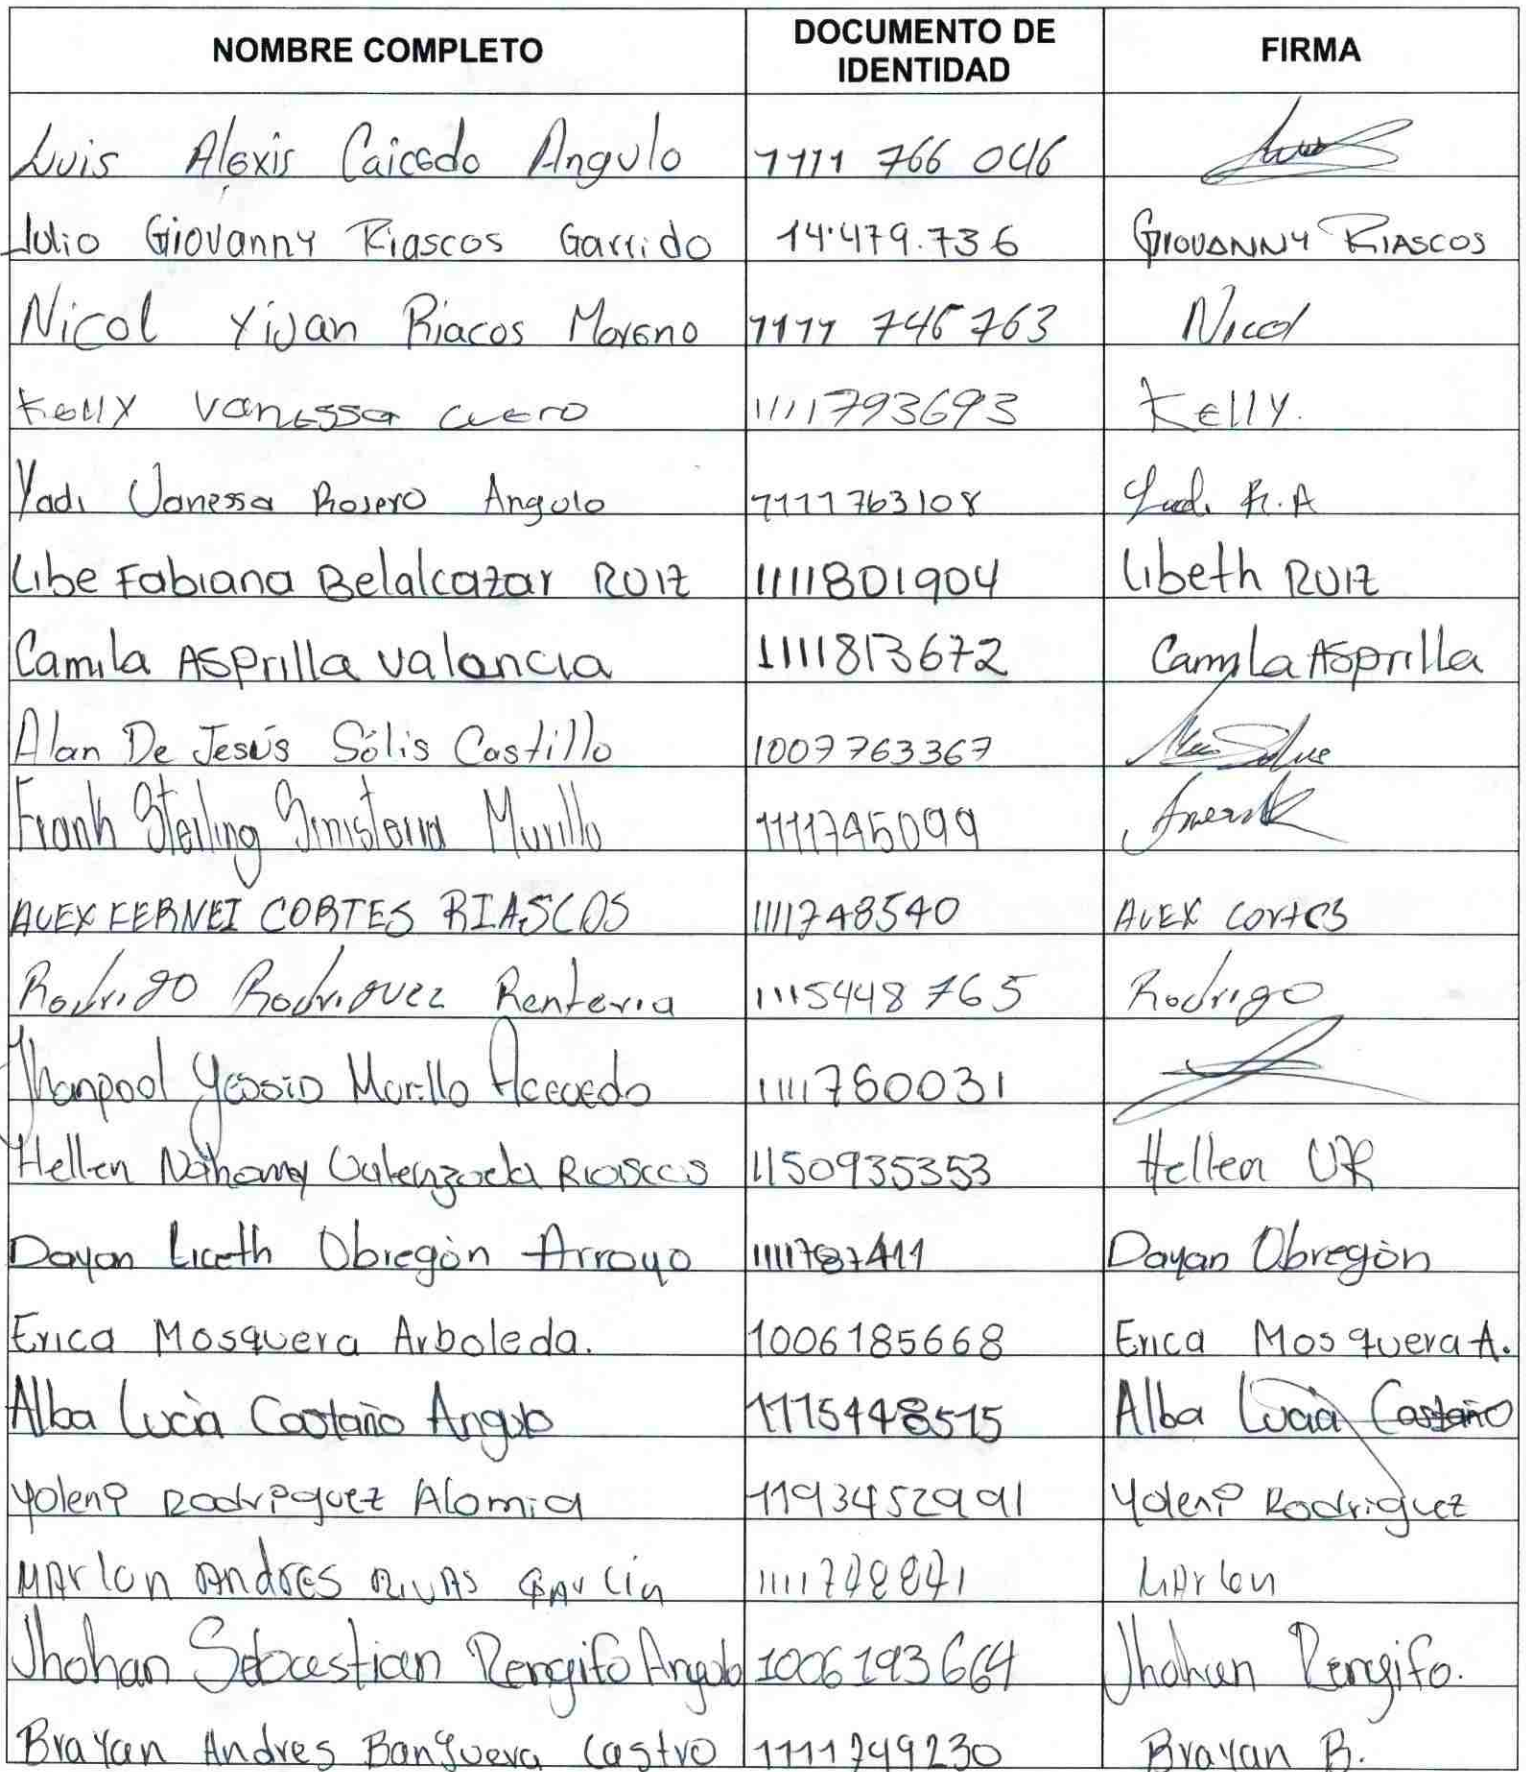 NOMBRE COMPLETO DOCUMENTO DE IDENTIDAD FIRMA
Luis Alexis Caicedo Angulo 1111 766 046
Julio Giovanny Riascos Garrido 14.479.736 Giovanny Riascos
Nicol Yivan Riacos Moreno 1111 746 763 Nicol
Kelly Vanessa Cuero 1111793693 Kelly.
Yadi Vanessa Rosero Angulo 1111763108 Yadi R.A
Libe Fabiana Belalcazar Ruiz 1111801904 Libeth Ruiz
Camila Asprilla Valancia 1111813672 Camila Asprilla
Alan De Jesús Sólis Castillo 1007763367
Frank Sterling Sinisterra Murillo 1111745099
ALEX FERNEI CORTES RIASCOS 1111748540 ALEX Cortes
Rodrigo Rodriguez Renteria 1115448765 Rodrigo
Jhanpool Yessid Murillo Acevedo 1111760031
Hellen Nahomy Valenzuela Riascos 1150935353 Hellen VR
Dayan Liceth Obregòn Arroyo 1111787411 Dayan Obregòn
Erica Mosquera Arboleda. 1006185668 Erica Mosquera A.
Alba Lucìa Castaño Angulo 1115448515 Alba Lucia Castaño
Yoleni Rodriguez Alomia 1193452991 Yoleni Rodriguez
Marlon Andres Rivas Garcia Marlon
Jhohan Sebastian Rengifo Angulo 1006193664 Jhohan Rengifo.
Brayan Andres Banguera Castro 1111749230 Brayan B.